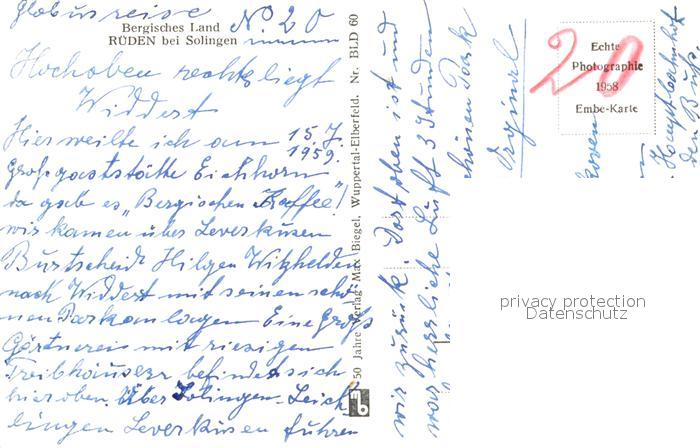 Globusreise
No. 20
Bergisches Land
RÜDEN bei Solingen
Hochoben rechts liegt
Widdert
Hier weilte ich am 15. J.
1959.
Großgaststätte Eichhorn
da gab es "Bergischen Kaffee"!
wir kamen über Leverkusen
Burtscheid Hilgen Witzhelden
nach Widdert mit seinen schö-
nen Parkanlagen Eine Groß
Gärtnerei mit riesigen
Treibhäuser befindet sich
hier oben. Über Solingen-Leich
lingen Leverkusen fuhren
wir zurück. Dort oben ist und
war herrliche Luft 3 Stunden
schönen Park
Orginal
Hauptbahnhof
den Bus
50 Jahre Verlag Max Biegel, Wuppertal-Elberfeld. Nr. BLD 60
mb
Echte
Photographie
1958
Embe-Karte
20
privacy protection
Datenschutz